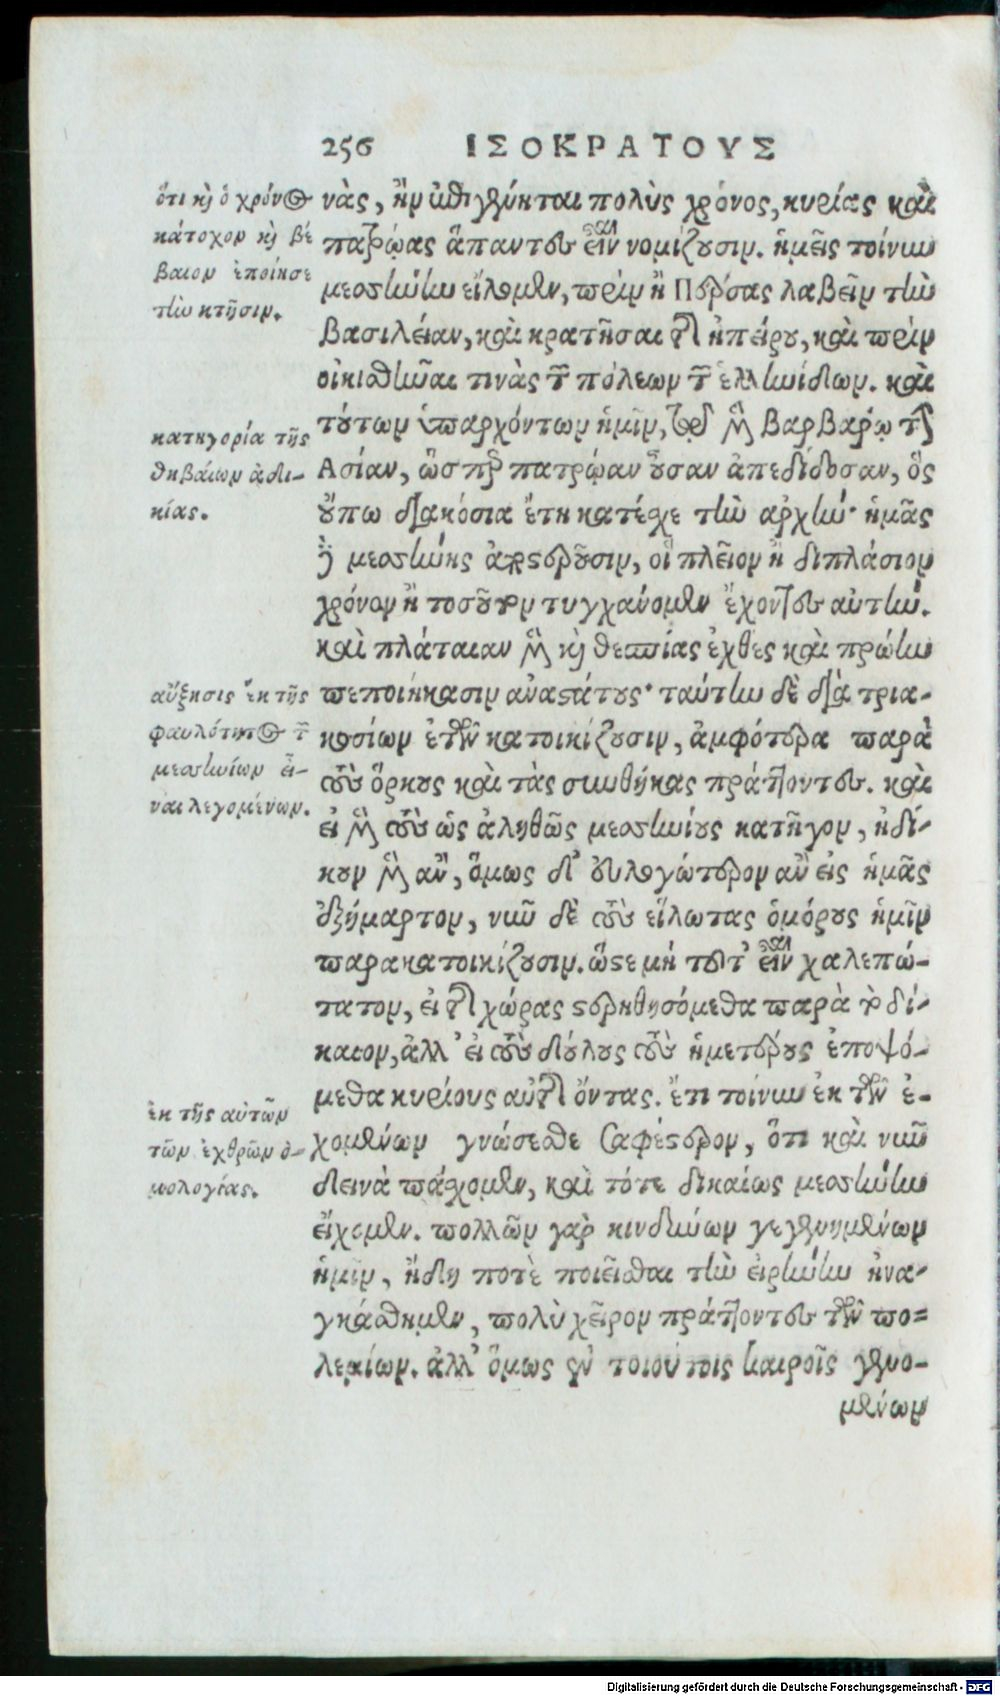 256 ΙΣΟΚΡΑΤΟΥΣ
νὰς, ἢν ἐπιγένηται πολὺς χρόνος, κυρίας καὶ
πατρῴας ἅπαντες εἶναι νομίζουσιν. ἡμεῖς τοίνυν
μεσσήνην εἵλομεν, πρὶν ἢ Πέρσας λαβεῖν τὴν
βασιλείαν, καὶ κρατῆσαι τῆς ἠπείρου, καὶ πρὶν
οἰκισθῆναι τινὰς τῶν πόλεων τῶν ἑλληνίδων. καὶ
τούτων ὑπαρχόντων ἡμῖν, τῷ μὲν βαρβάρῳ τὴν
Ασίαν, ὥσπερ πατρῴαν οὖσαν ἀπεδίδοσαν, ὃς
οὔπω διακόσια ἔτη κατέχει τὴν ἀρχήν· ἡμᾶς
δὲ μεσσήνης ἀποστεροῦσιν, οἳ πλεῖον ἢ διπλάσιον
χρόνον ἢ τοσοῦτον τυγχάνομεν ἔχοντες αὐτήν.
καὶ πλάταιαν μὲν καὶ θεσπίας ἐχθὲς καὶ πρώην
πεποιήκασιν ἀναστάτους· ταύτην δὲ διὰ τρια-
κοσίων ἐτῶν κατοικίζουσιν, ἀμφότερα παρὰ
τοὺς ὅρκους καὶ τὰς συνθήκας πράττοντες. καὶ
εἰ μὲν τοὺς ὡς ἀληθῶς μεσσηνίους κατῆγον, ἠδί-
κουν μὲν ἂν, ὅμως δ' εὐλογώτερον ἂν εἰς ἡμᾶς
ἐξήμαρτον, νῦν δὲ τοὺς εἵλωτας ὁμόρους ἡμῖν
παρακατοικίζουσιν. ὥστε μὴ τοῦτ' εἶναι χαλεπώ-
τατον, εἰ τῆς χώρας στερηθησόμεθα παρὰ τὸ δί-
καιον, ἀλλ' εἰ τοὺς δούλους τοὺς ἡμετέρους ἐποψό-
μεθα κυρίους αὐτῆς ὄντας. ἔτι τοίνυν ἐκ τῶν ἐ-
χομένων γνώσεσθε σαφέστερον, ὅτι καὶ νῦν
δεινὰ πάσχομεν, καὶ τότε δικαίως μεσσήνην
εἴχομεν. πολλῶν γὰρ κινδύνων γεγενημένων
ἡμῖν, ἤδη ποτὲ ποιεῖσθαι τὴν εἰρήνην ἠνα-
γκάσθημεν, πολὺ χεῖρον πράττοντες τῶν πο-
λεμίων. ἀλλ' ὅμως ἐν τοιούτοις καιροῖς γενο-
μένων
ὅτι καὶ ὁ χρόνος
κάτοχον καὶ βέ
βαιον ἐποίησε
τὴν κτῆσιν.
κατηγορία τῆς
θηβαίων ἀδι-
κίας.
αὔξησις ἐκ τῆς
φαυλότητος τῶν
μεσσηνίων εἶ-
ναι λεγομένων.
ἐκ τῆς αὐτῶν
τῶν ἐχθρῶν ὁ-
μολογίας.
Digitalisierung gefördert durch die Deutsche Forschungsgemeinschaft - DFG